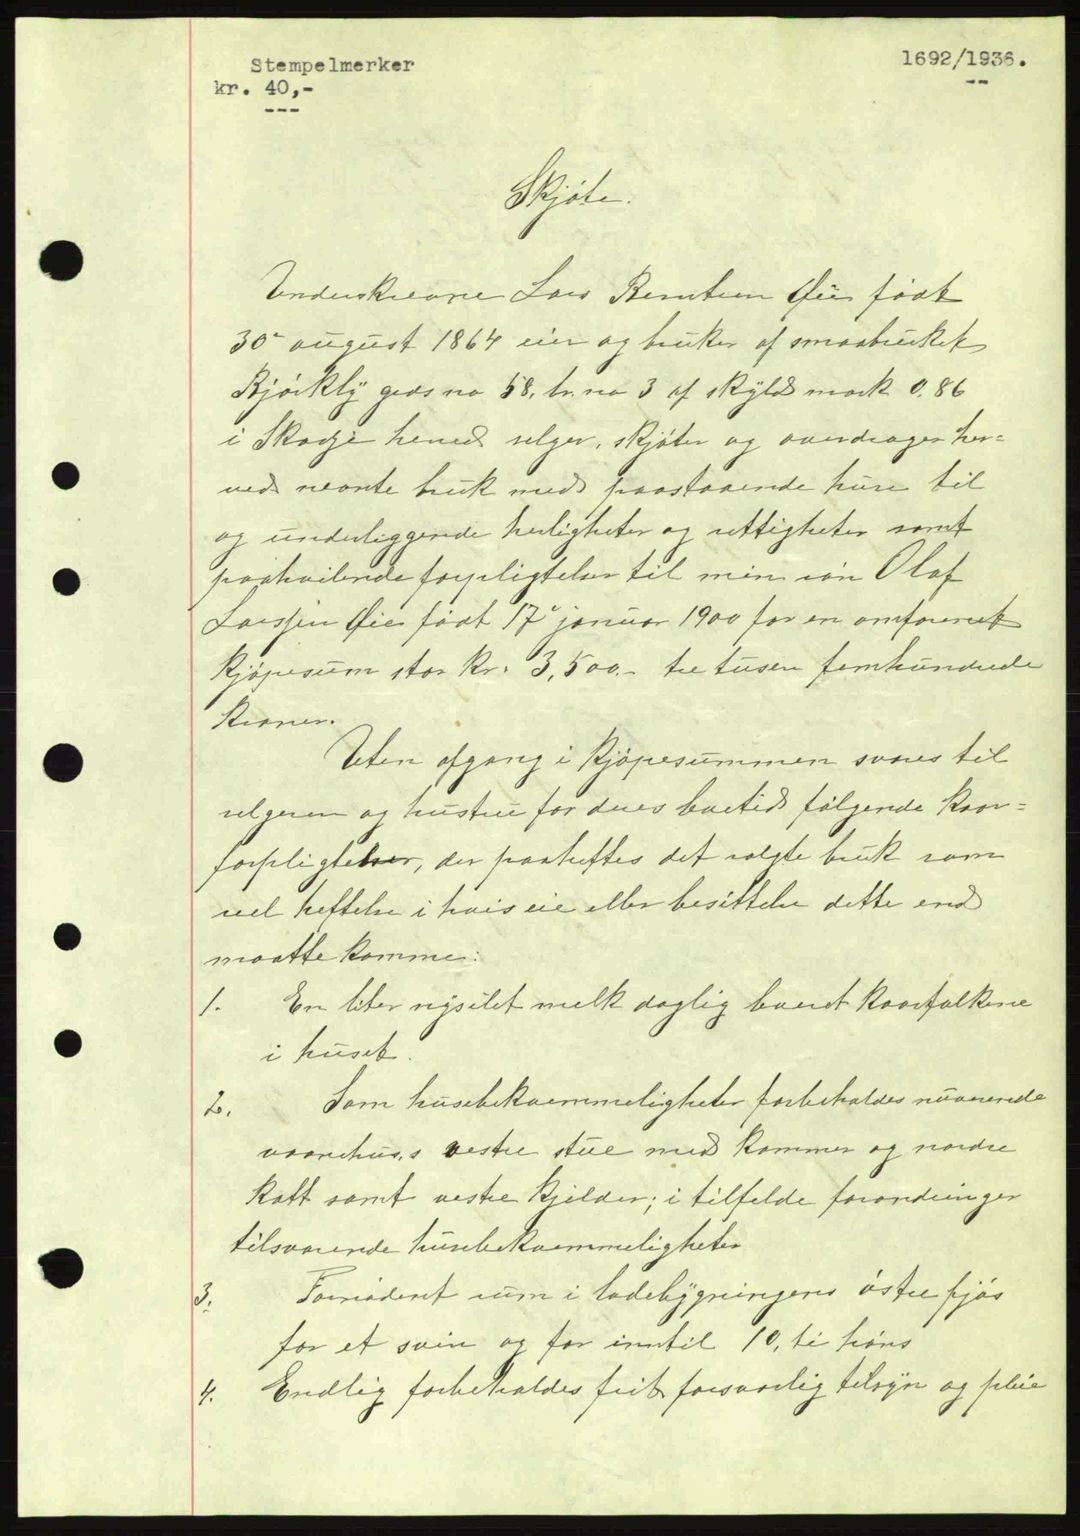 Stempelmerker
kr. 40,-
---
1692/1936.
--
Skjøte.
Underskrevne Lars Berntsen Øie født
30- august 1864 eier og bruker af smaabruket
Bjørkly grds no 58, br. no 3 af skyld mark 0.86
i Skodje herred selger, skjøter og overdrager her=
ved nevnte bruk med paastaaende huse til
og underliggende herligheter og rettigheter samt
paahvilende forpligtelser til min søn Olaf
Larssen Øie født 17- januar 1900 for en omforenet
kjøpesum stor kr. 3,500.- tre tusen femhundrede
kroner.
Uten afgang i kjøpesummen svares til
selgeren og hustru for deres levetid følgende kaar=
forpligtelser, der paaheftes det solgte bruk som
reel heftelse i hvis eie eller besittelse dette end
maatte komme:
1. En liter nysilet melk daglig baaret kaarfolkene
i huset.
2. Som husebekvemmeligheter forbeholdes nuværende
vaanehus,s vestre stue med kammer og nordre
loft samt vestre kjelder; i tilfelde forandringer
tilsvarende husebekvemmeligheter
3. Fornødent rum i ladebygningens østre fjøs
for et svin og for inntil 10, ti høns
4. Endlig forbeholdes frit forsvarlig tilsyn og pleie